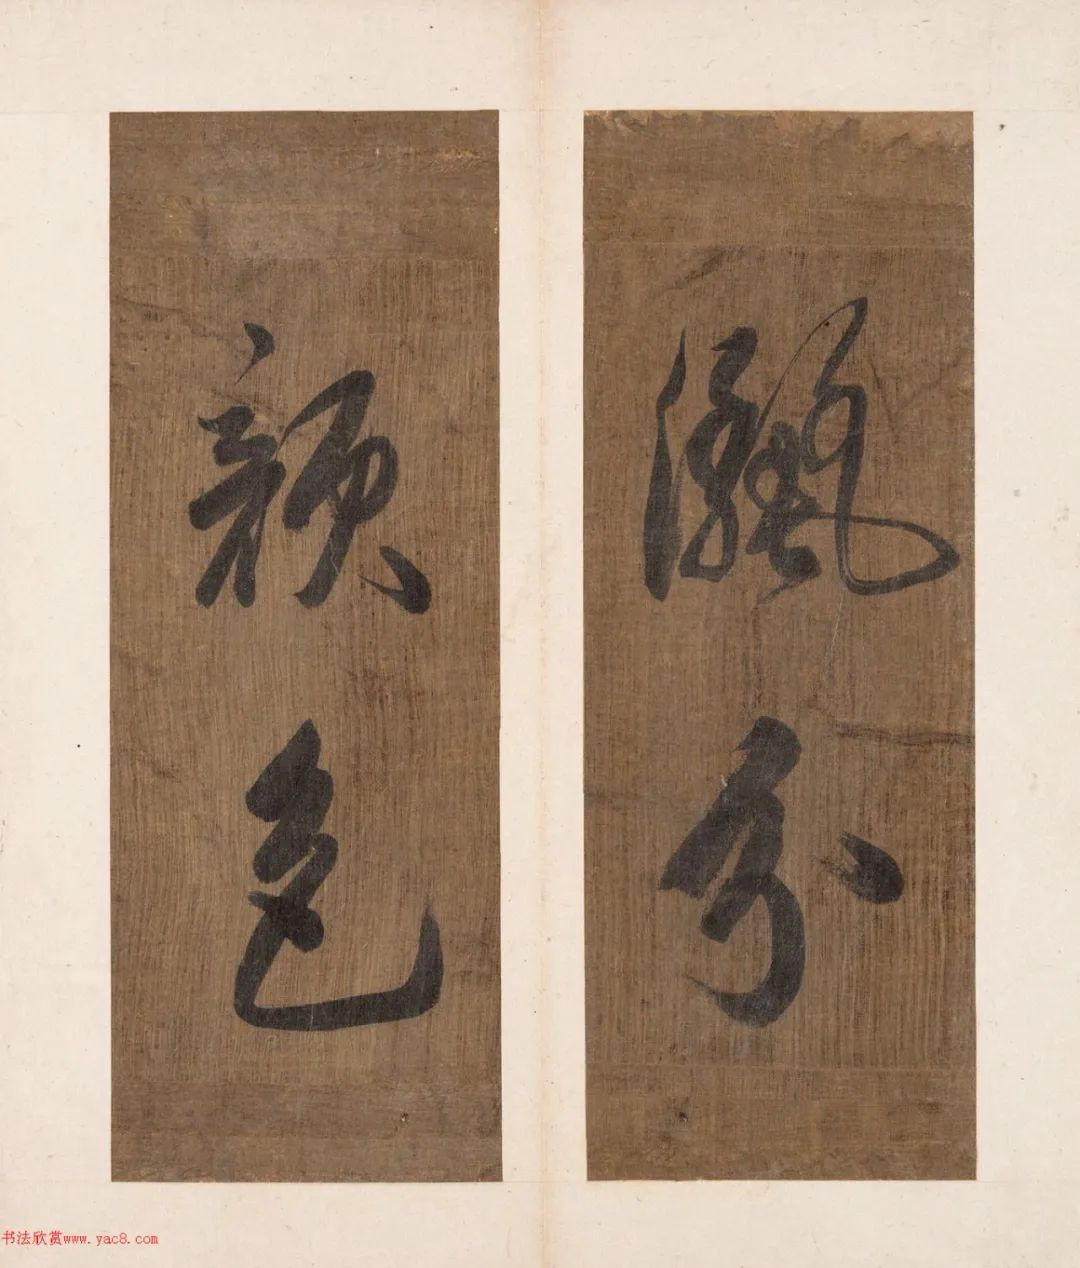 分
顔色
书法欣赏www.yac8.com